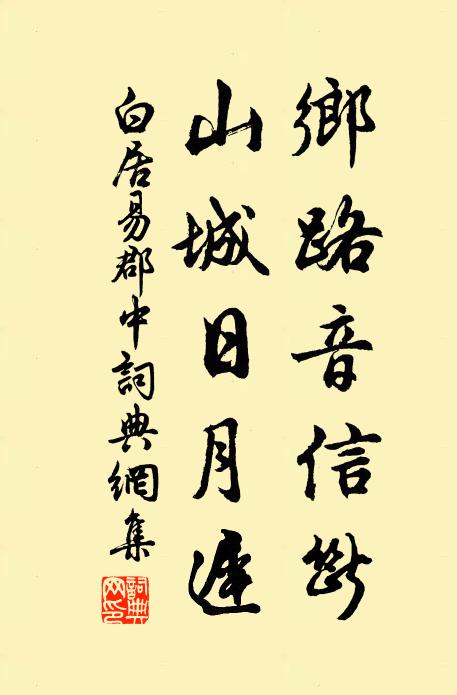 鄉路音信斷
山城日月遲
白居易郡中詞典網集
詞典網印